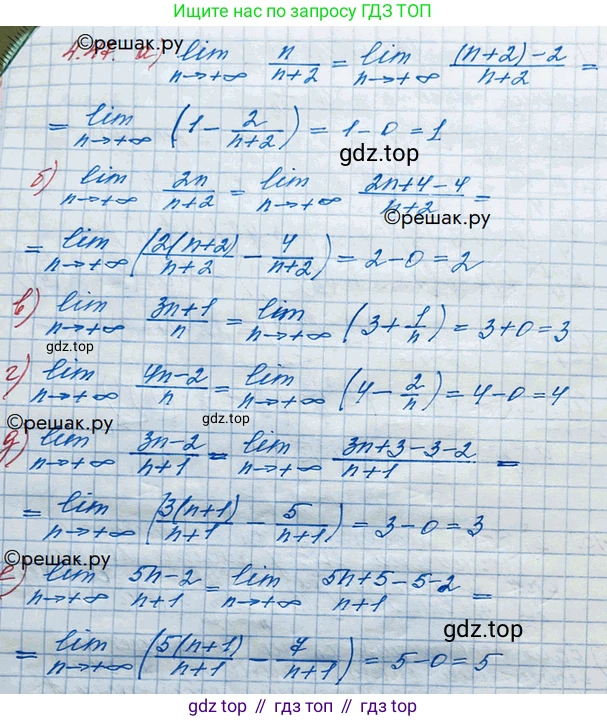 Ищите нас по запросу ГДЗ ТОП
©решак.ру
4.47. а) lim n→+∞ n/(n+2) = lim n→+∞ ((n+2)-2)/(n+2) =
= lim n→+∞ (1 - 2/(n+2)) = 1-0 = 1
gdz.top
б) lim n→+∞ 2n/(n+2) = lim n→+∞ (2n+4-4)/(n+2) =
©решак.ру
= lim n→+∞ (2(n+2)/(n+2) - 4/(n+2)) = 2-0 = 2
в) lim n→+∞ (3n+1)/n = lim n→+∞ (3 + 1/n) = 3+0 = 3
gdz.top
г) lim n→+∞ (4n-2)/n = lim n→+∞ (4 - 2/n) = 4-0 = 4
©решак.ру
gdz.top
д) lim n→+∞ (3n-2)/(n+1) = lim n→+∞ (3n+3-3-2)/(n+1) =
= lim n→+∞ (3(n+1)/(n+1) - 5/(n+1)) = 3-0 = 3
©решак.ру
е) lim n→+∞ (5n-2)/(n+1) = lim n→+∞ (5n+5-5-2)/(n+1) =
gdz.top
= lim n→+∞ (5(n+1)/(n+1) - 7/(n+1)) = 5-0 = 5
gdz top // gdz top // gdz.top